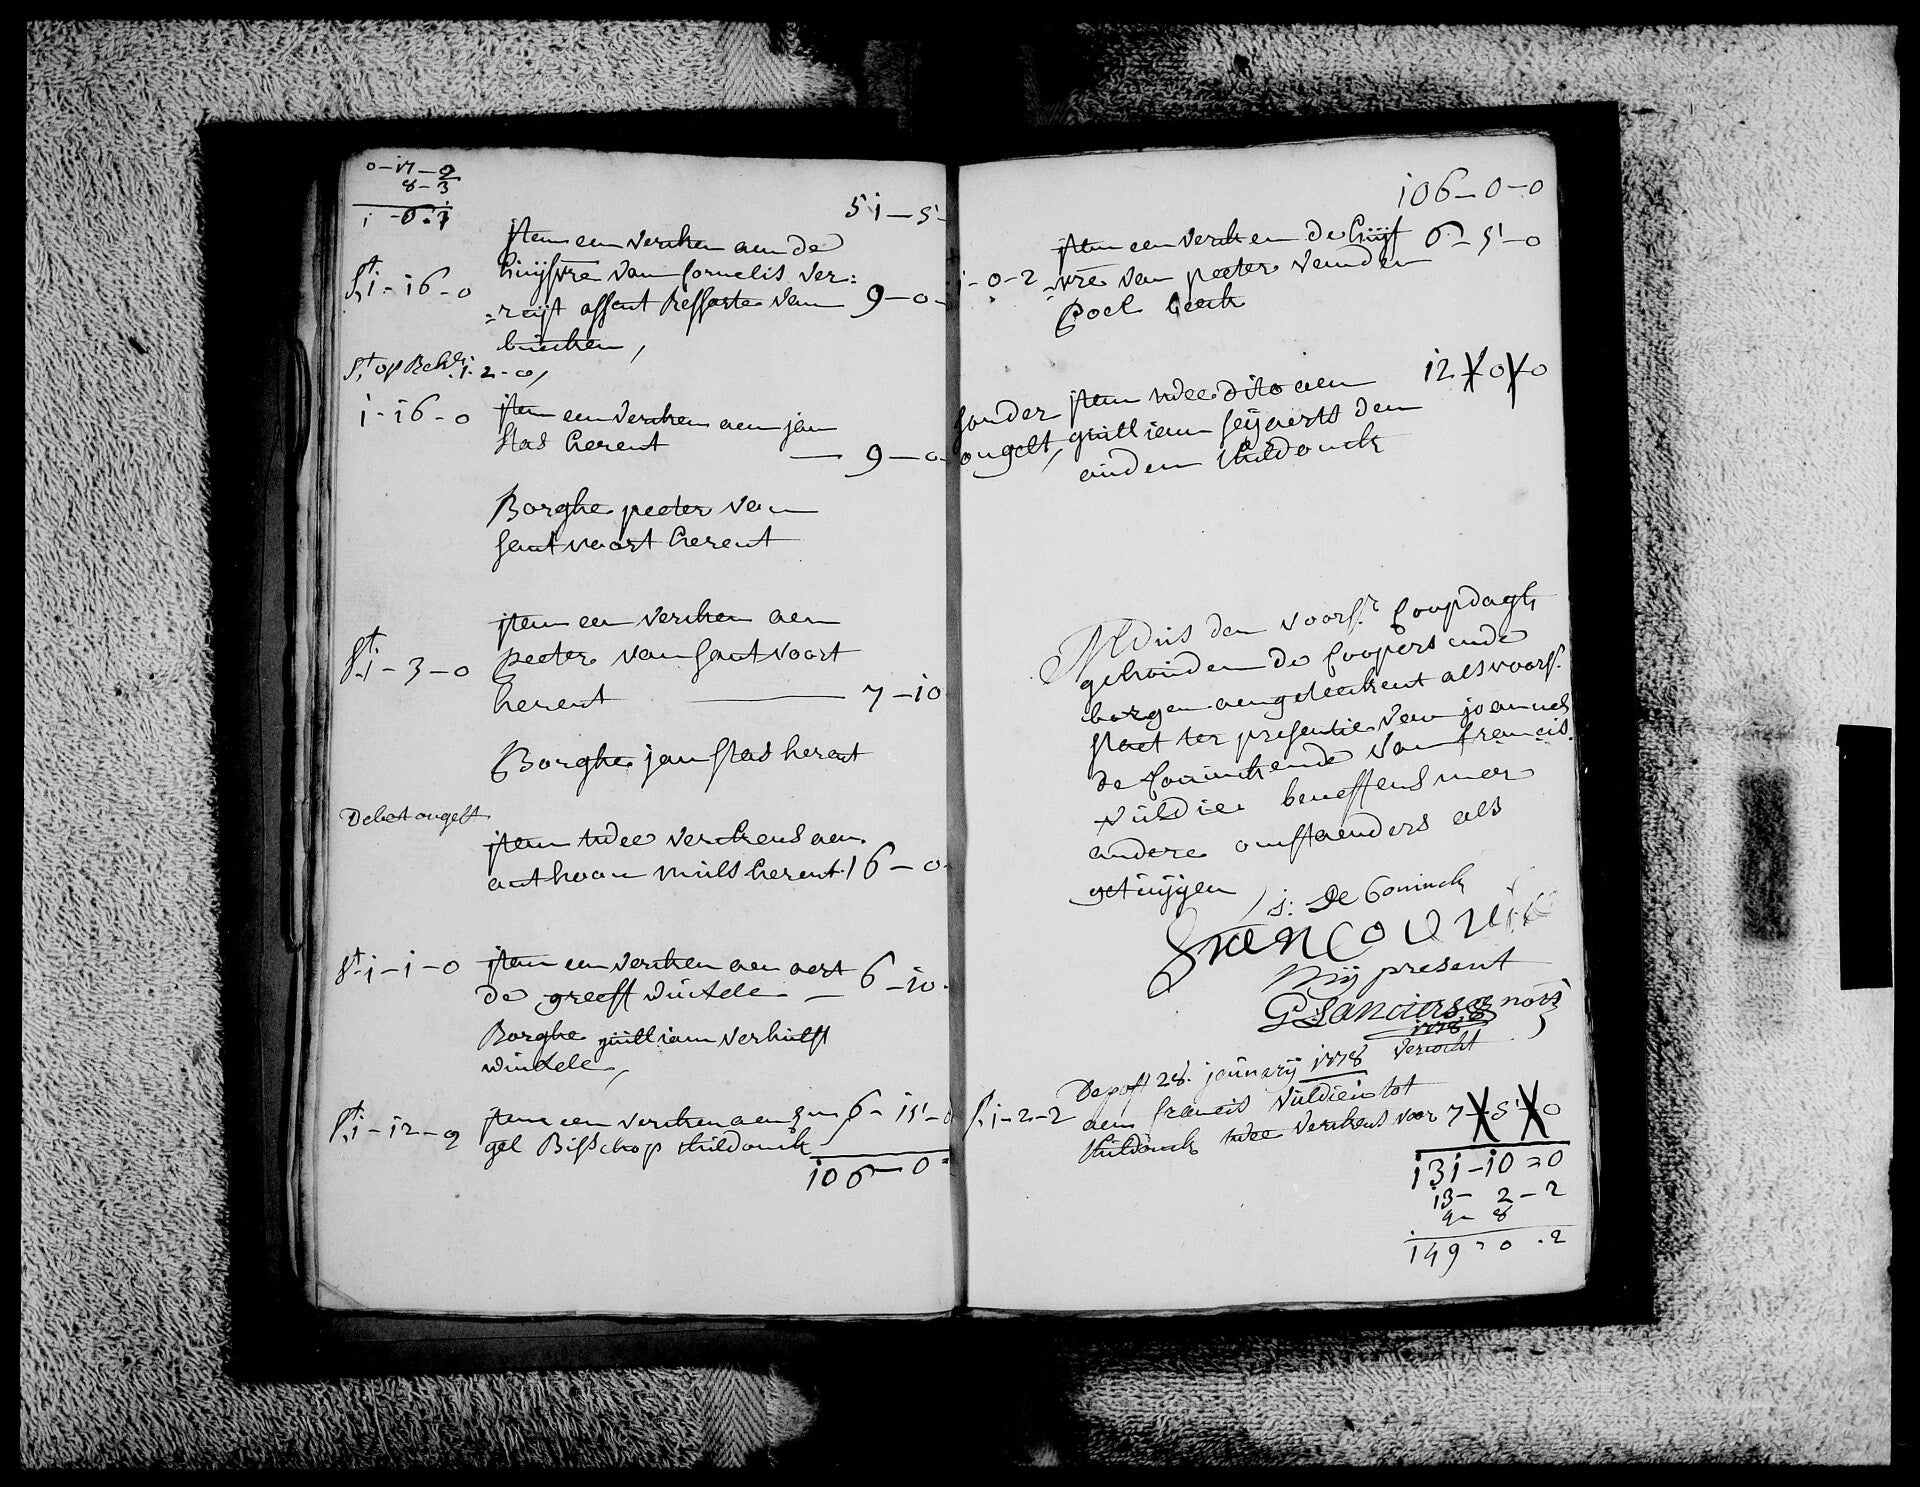 0-17-2
8-3
1-6-1
51-5-
Item een vercken aen de
huijsvre van Cornelis ver:
St 1-16-0
=reijst assent Resserte van 9-0-
buecken,
St op Rek. 1-2-0,
1-16-0 Item een vercken aen jan
stas herent — 9-0-
Borghe peeter van
santvoort herent
Item een vercken aen
St 1-3-0 peeter van santvoort
herent — 7-10
Borghe jan stas herent
Debet ongelt
Item twee verckens aen
anthoon mills herent 16-0-
St 1-1-0 Item een vercken aen aert 6-10-
de greeff winxele —
Borghe guilliam verhulst
winxele,
St 1-12-2 Item een vercken aen 6-15-0
gel Bisschop thildonck
106-0-
106-0-0
Item een vercken de huijs 6-5-0
1-0-2 -vre van peeter vanden
Poel beeck
12-0-0
sonder Item twee dito aen
ongelt, guilliam seijaerts den
ouden thildonck
Aldus den voors. Coopdagh
gehouden de Coopers ende
borgen aengeteekent als voors.
staet ter presentie van joannes
de Coninck ende van francis
vuldier beneffens meer
andere omstaenders als
getuijgen
j: De Coninck
Mij present
G. Lanciers nots
1778
verkocht
De post 28. january 1778
aen francis vuldier tot
St 1-2-2 thildonck twee verckens voor 7-5-0
131-10=0
13-2-2
4-8
149-0-2